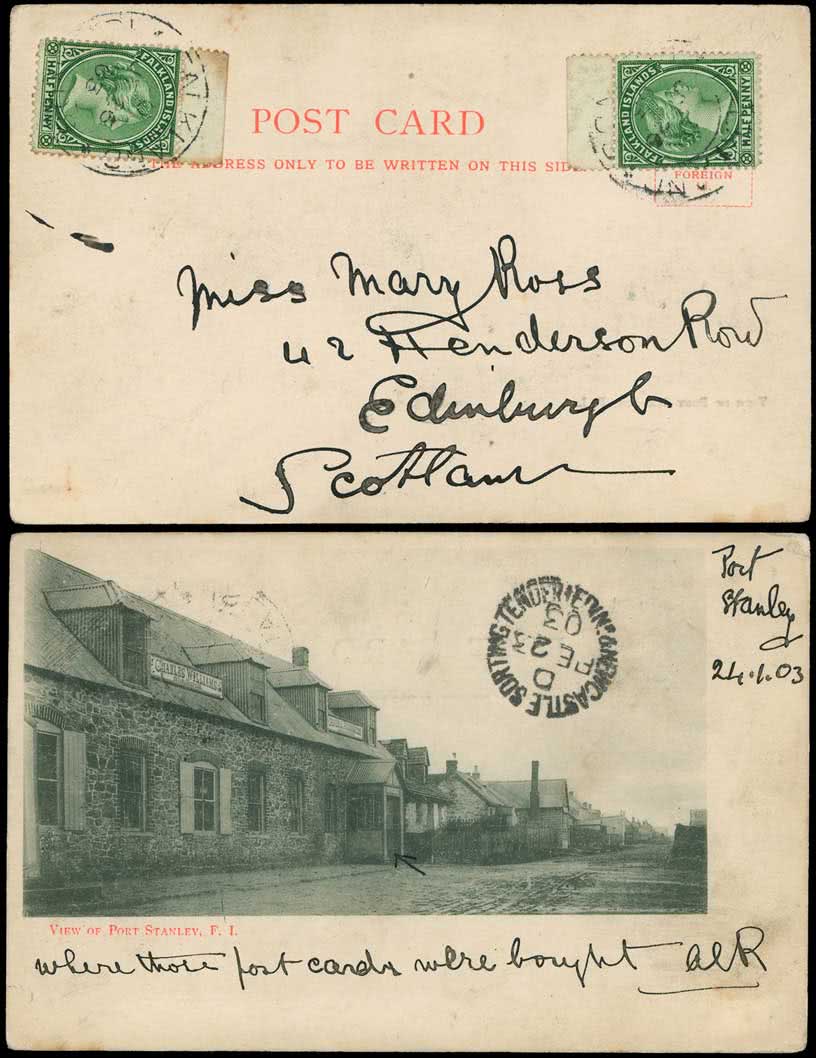 FALKLAND ISLANDS
HALF PENNY
FALKLAND ISLANDS
HALF PENNY
POST CARD
THE ADDRESS ONLY TO BE WRITTEN ON THIS SIDE
FOREIGN
Miss Mary Ross
42 Henderson Row
Edinburgh
Scotland
Port
Stanley
24.1.03
SORTING TENDER (EDINR & NEWCASTLE
D
FE 23
03
CHARLES WILLIAMS
VIEW OF PORT STANLEY, F. I.
where those post cards were bought